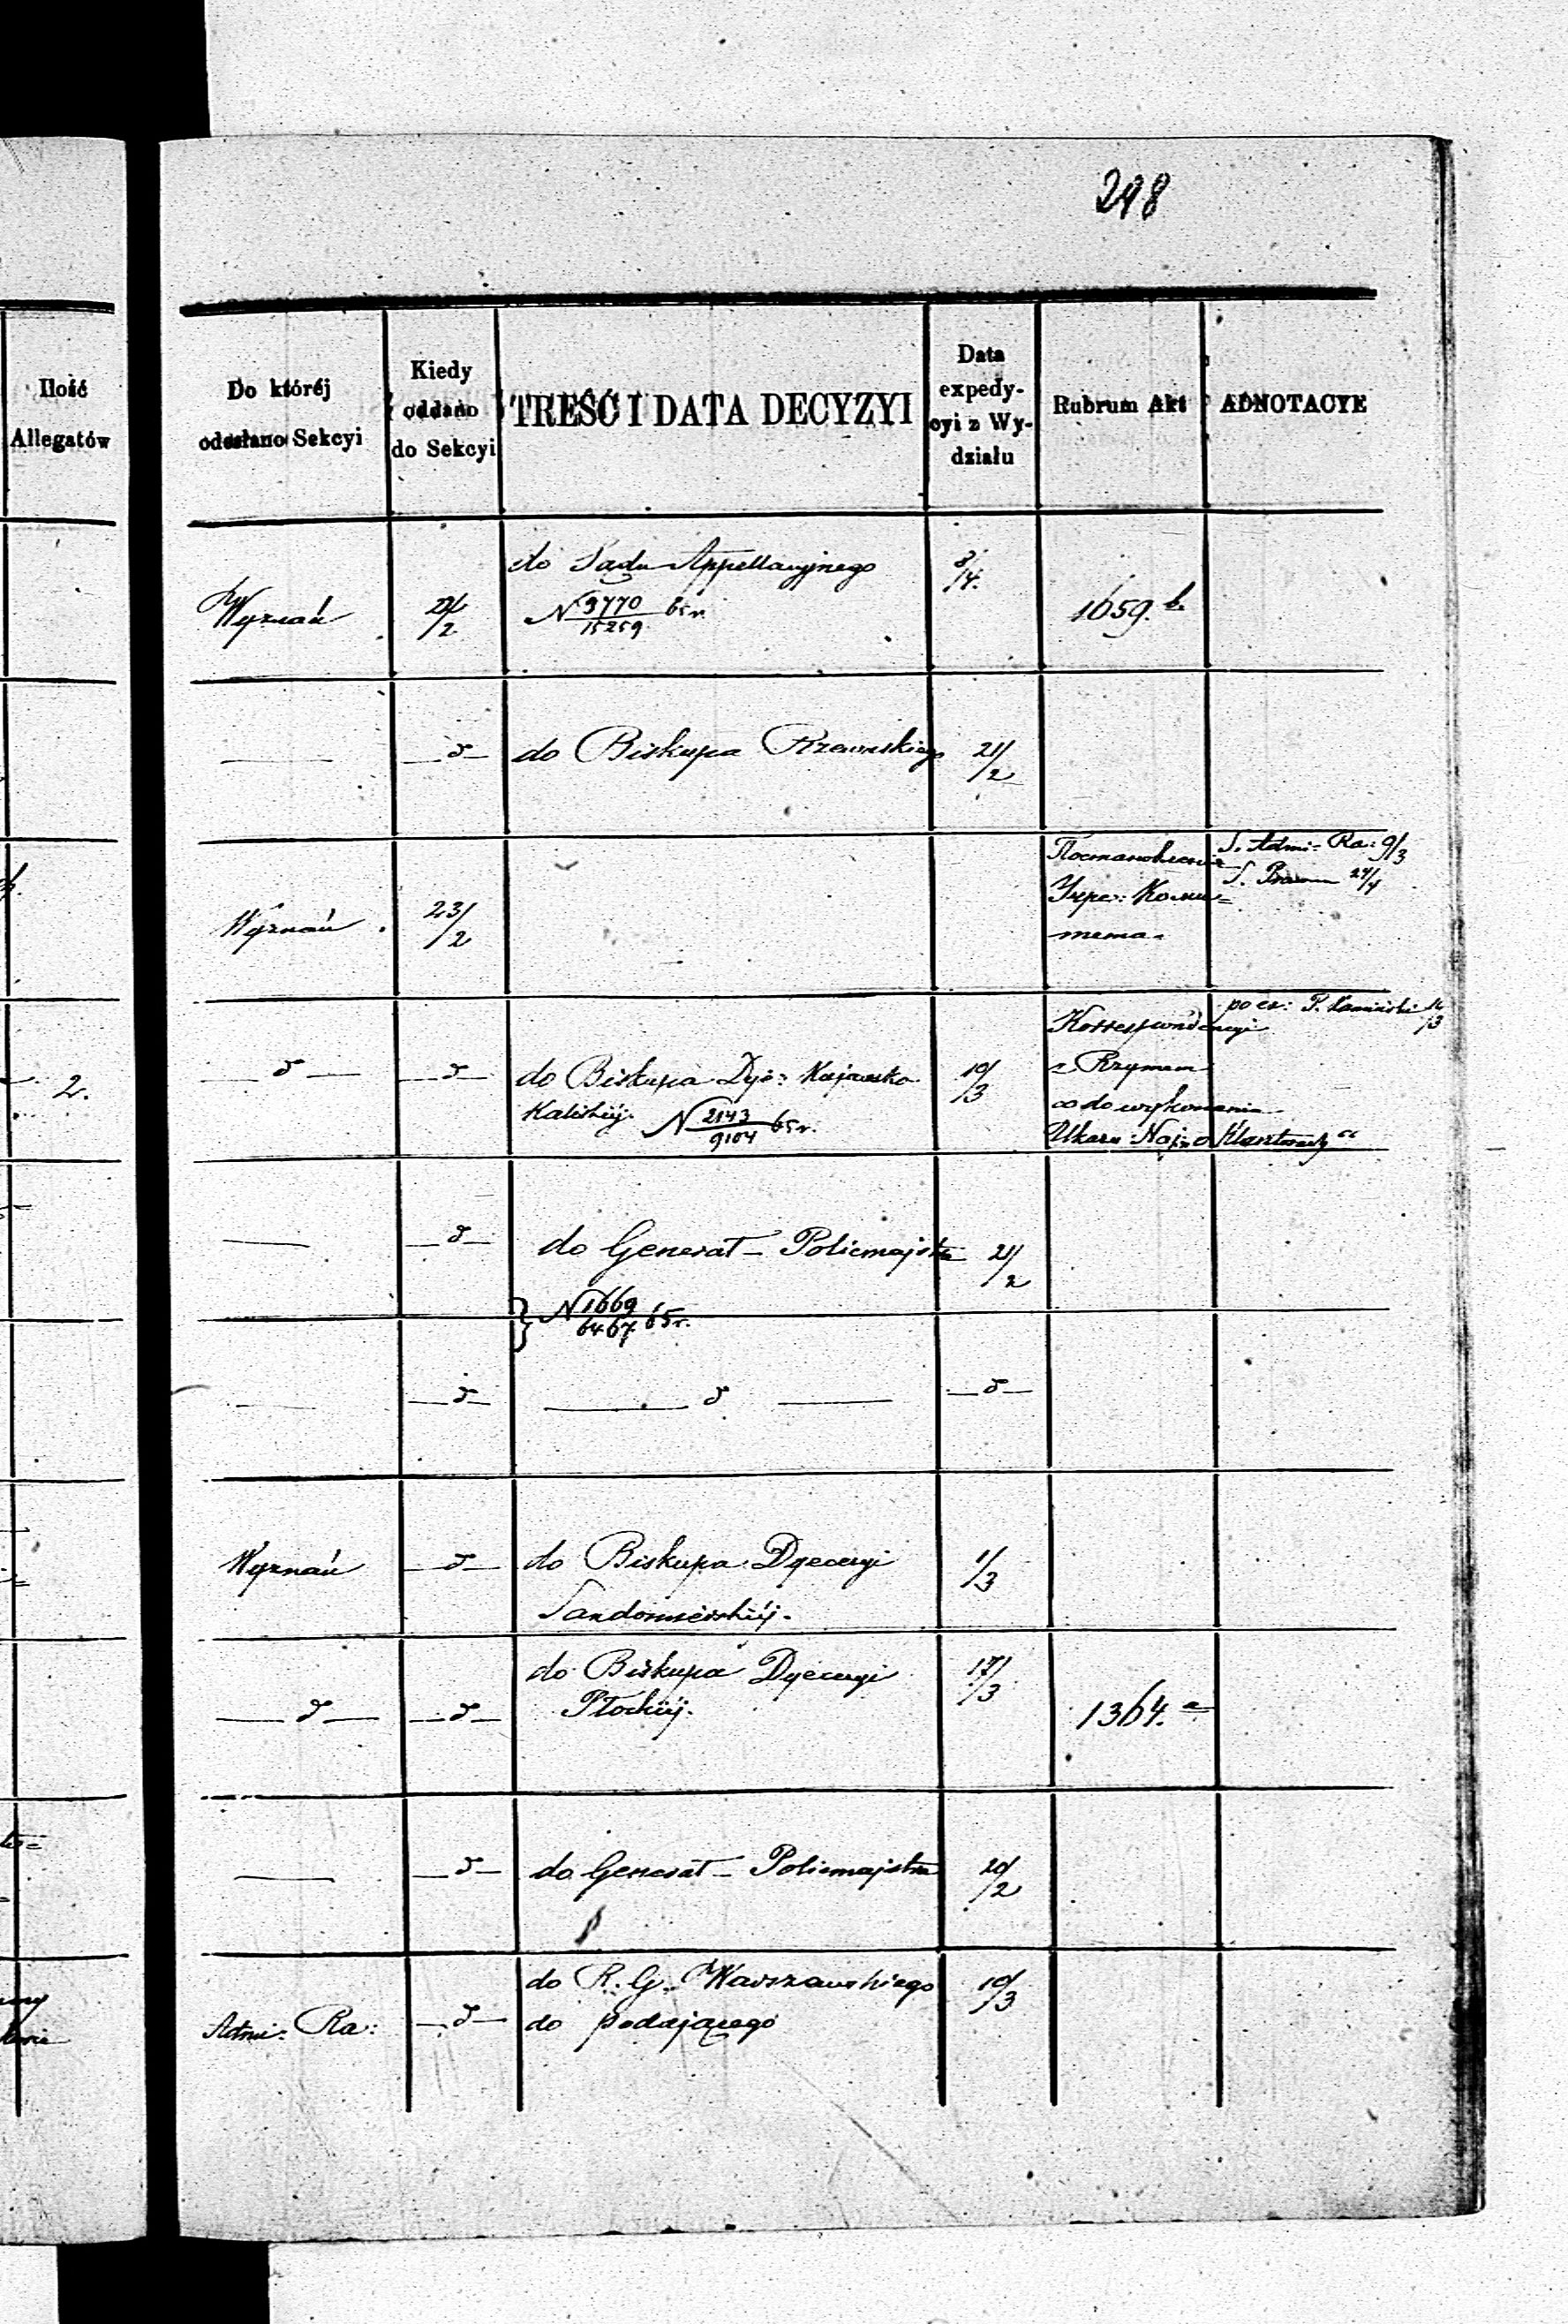 298
Ilość
Allegatów
Do któréj
odesłano Sekcyi
Kiedy
oddano
do Sekcyi
TREŚĆ I DATA DECYZYI
Data
expedy-
cyi z Wy-
działu
Rubrum Akt
ADNOTACYE
Wyznań
2/2
do Sądu Appellacyjnego
N 9770/15259 65 r.
3/4.
1659. b.
—
—d—
do Biskupa Rzewuskiego
21/2
Wyznań
23/2
Постановления
Учре: Коми=
тета.
S. Admi: Ra: 9/3
S. 24/4
2.
—d—
—d—
do Biskupa Dye: Kujawsko
Kaliskiéj. N 2143/9104 65 r.
10/3
Korrespondencyi
z Rzymem
co do wykonania
Ukazu Najw o Klasztorach"
po cz: P. Kamiński 16/3
—
—d—
do Generał-Policmajstra
N 1669/6467 65 r.
21/2
—
—d—
— d —
—d—
Wyznań
—d—
do Biskupa Dyecezyi
Sandomierskiéj.
1/3
—d—
—d—
do Biskupa Dyecezyi
Płockiéj.
17/3
1364. a
—
—d—
do Generał-Policmajstra
20/2
Admi: Ra:
—d—
do R. G. Warszawskiego
do podającego
10/3